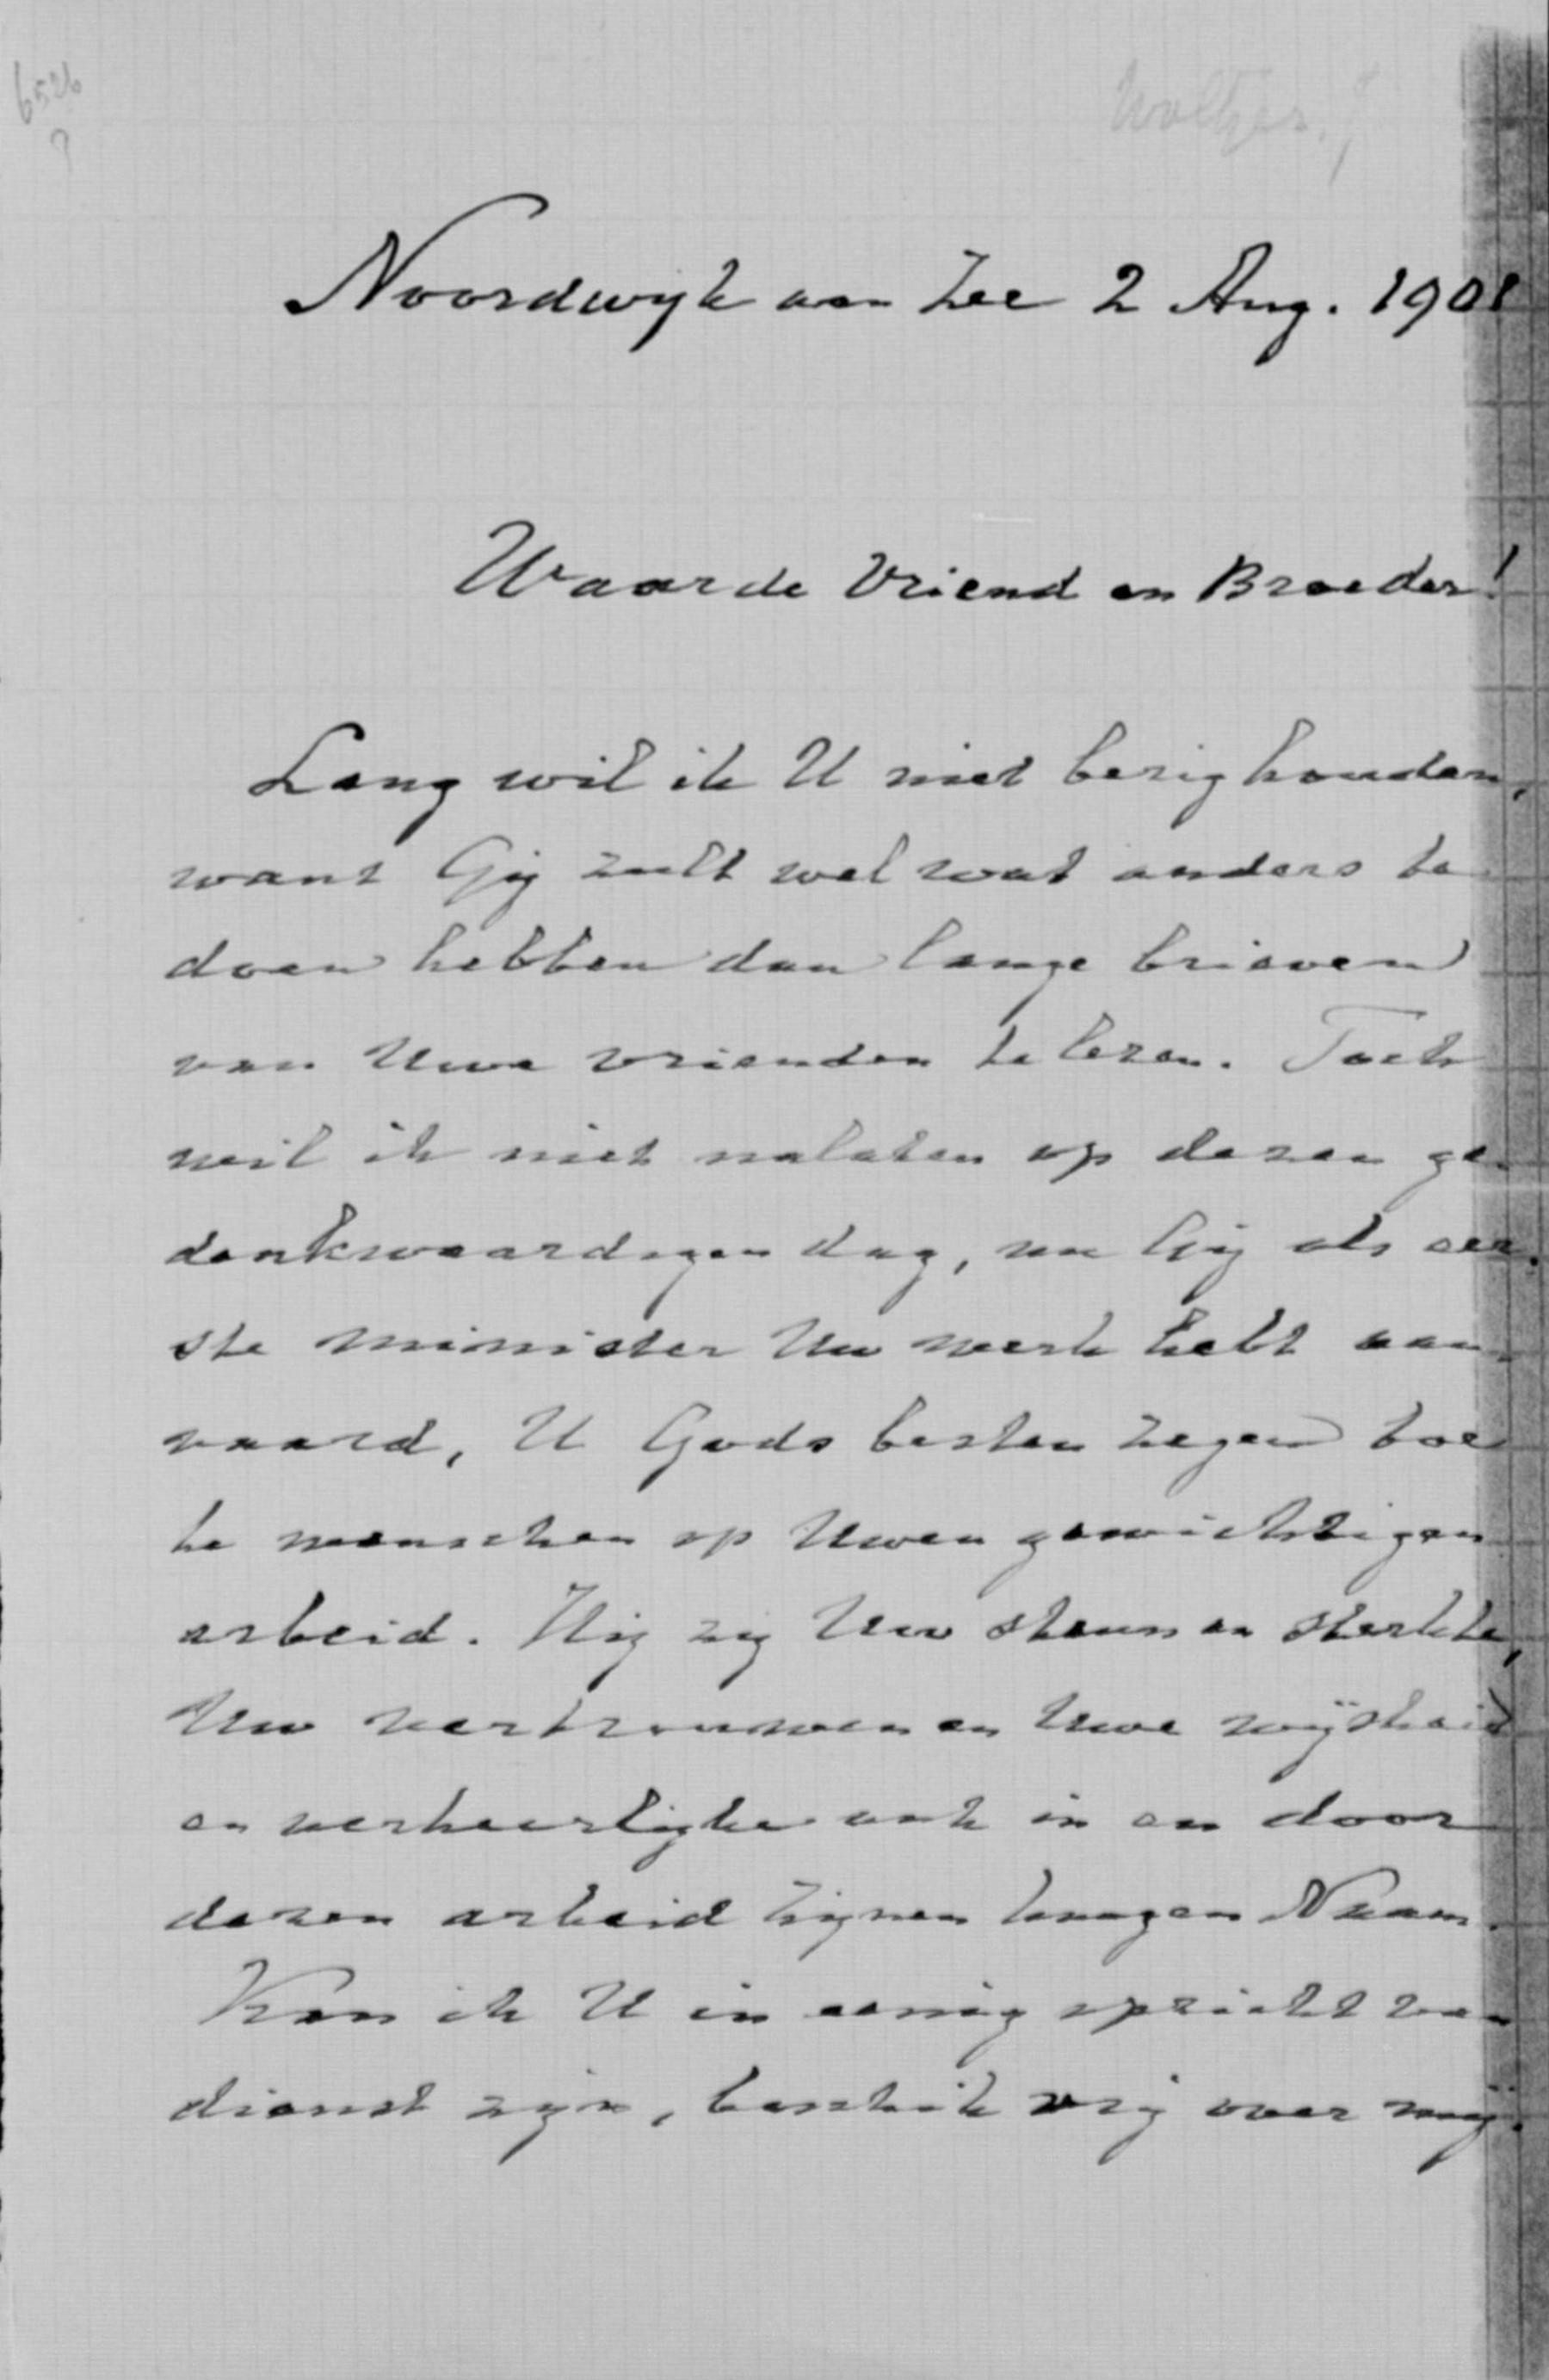 6526
?
Woltjer, J
Noordwijk aan Zee 2 Aug. 1901
Waarde Vriend en Broeder!
Lang wil ik U niet bezig houden,
want Gij zult wel wat anders te
doen hebben dan lange brieven
van Uwe vrienden te lezen. Toch
wil ik niet nalaten op dezen ge-
denkwaardigen dag, nu Gij als eer-
ste minister Uw werk hebt aan-
vaard, U Gods besten zegen toe
te wenschen op Uwen gewichtigen
arbeid. Hij zij Uw steun en sterkte,
Uw vertrouwen en Uwe wijsheid
en verheerlijke ook in en door
dezen arbeid Zijnen hoogen Naam.
Kan ik U in eenig opzicht van
dienst zijn, beschik vrij over mij.